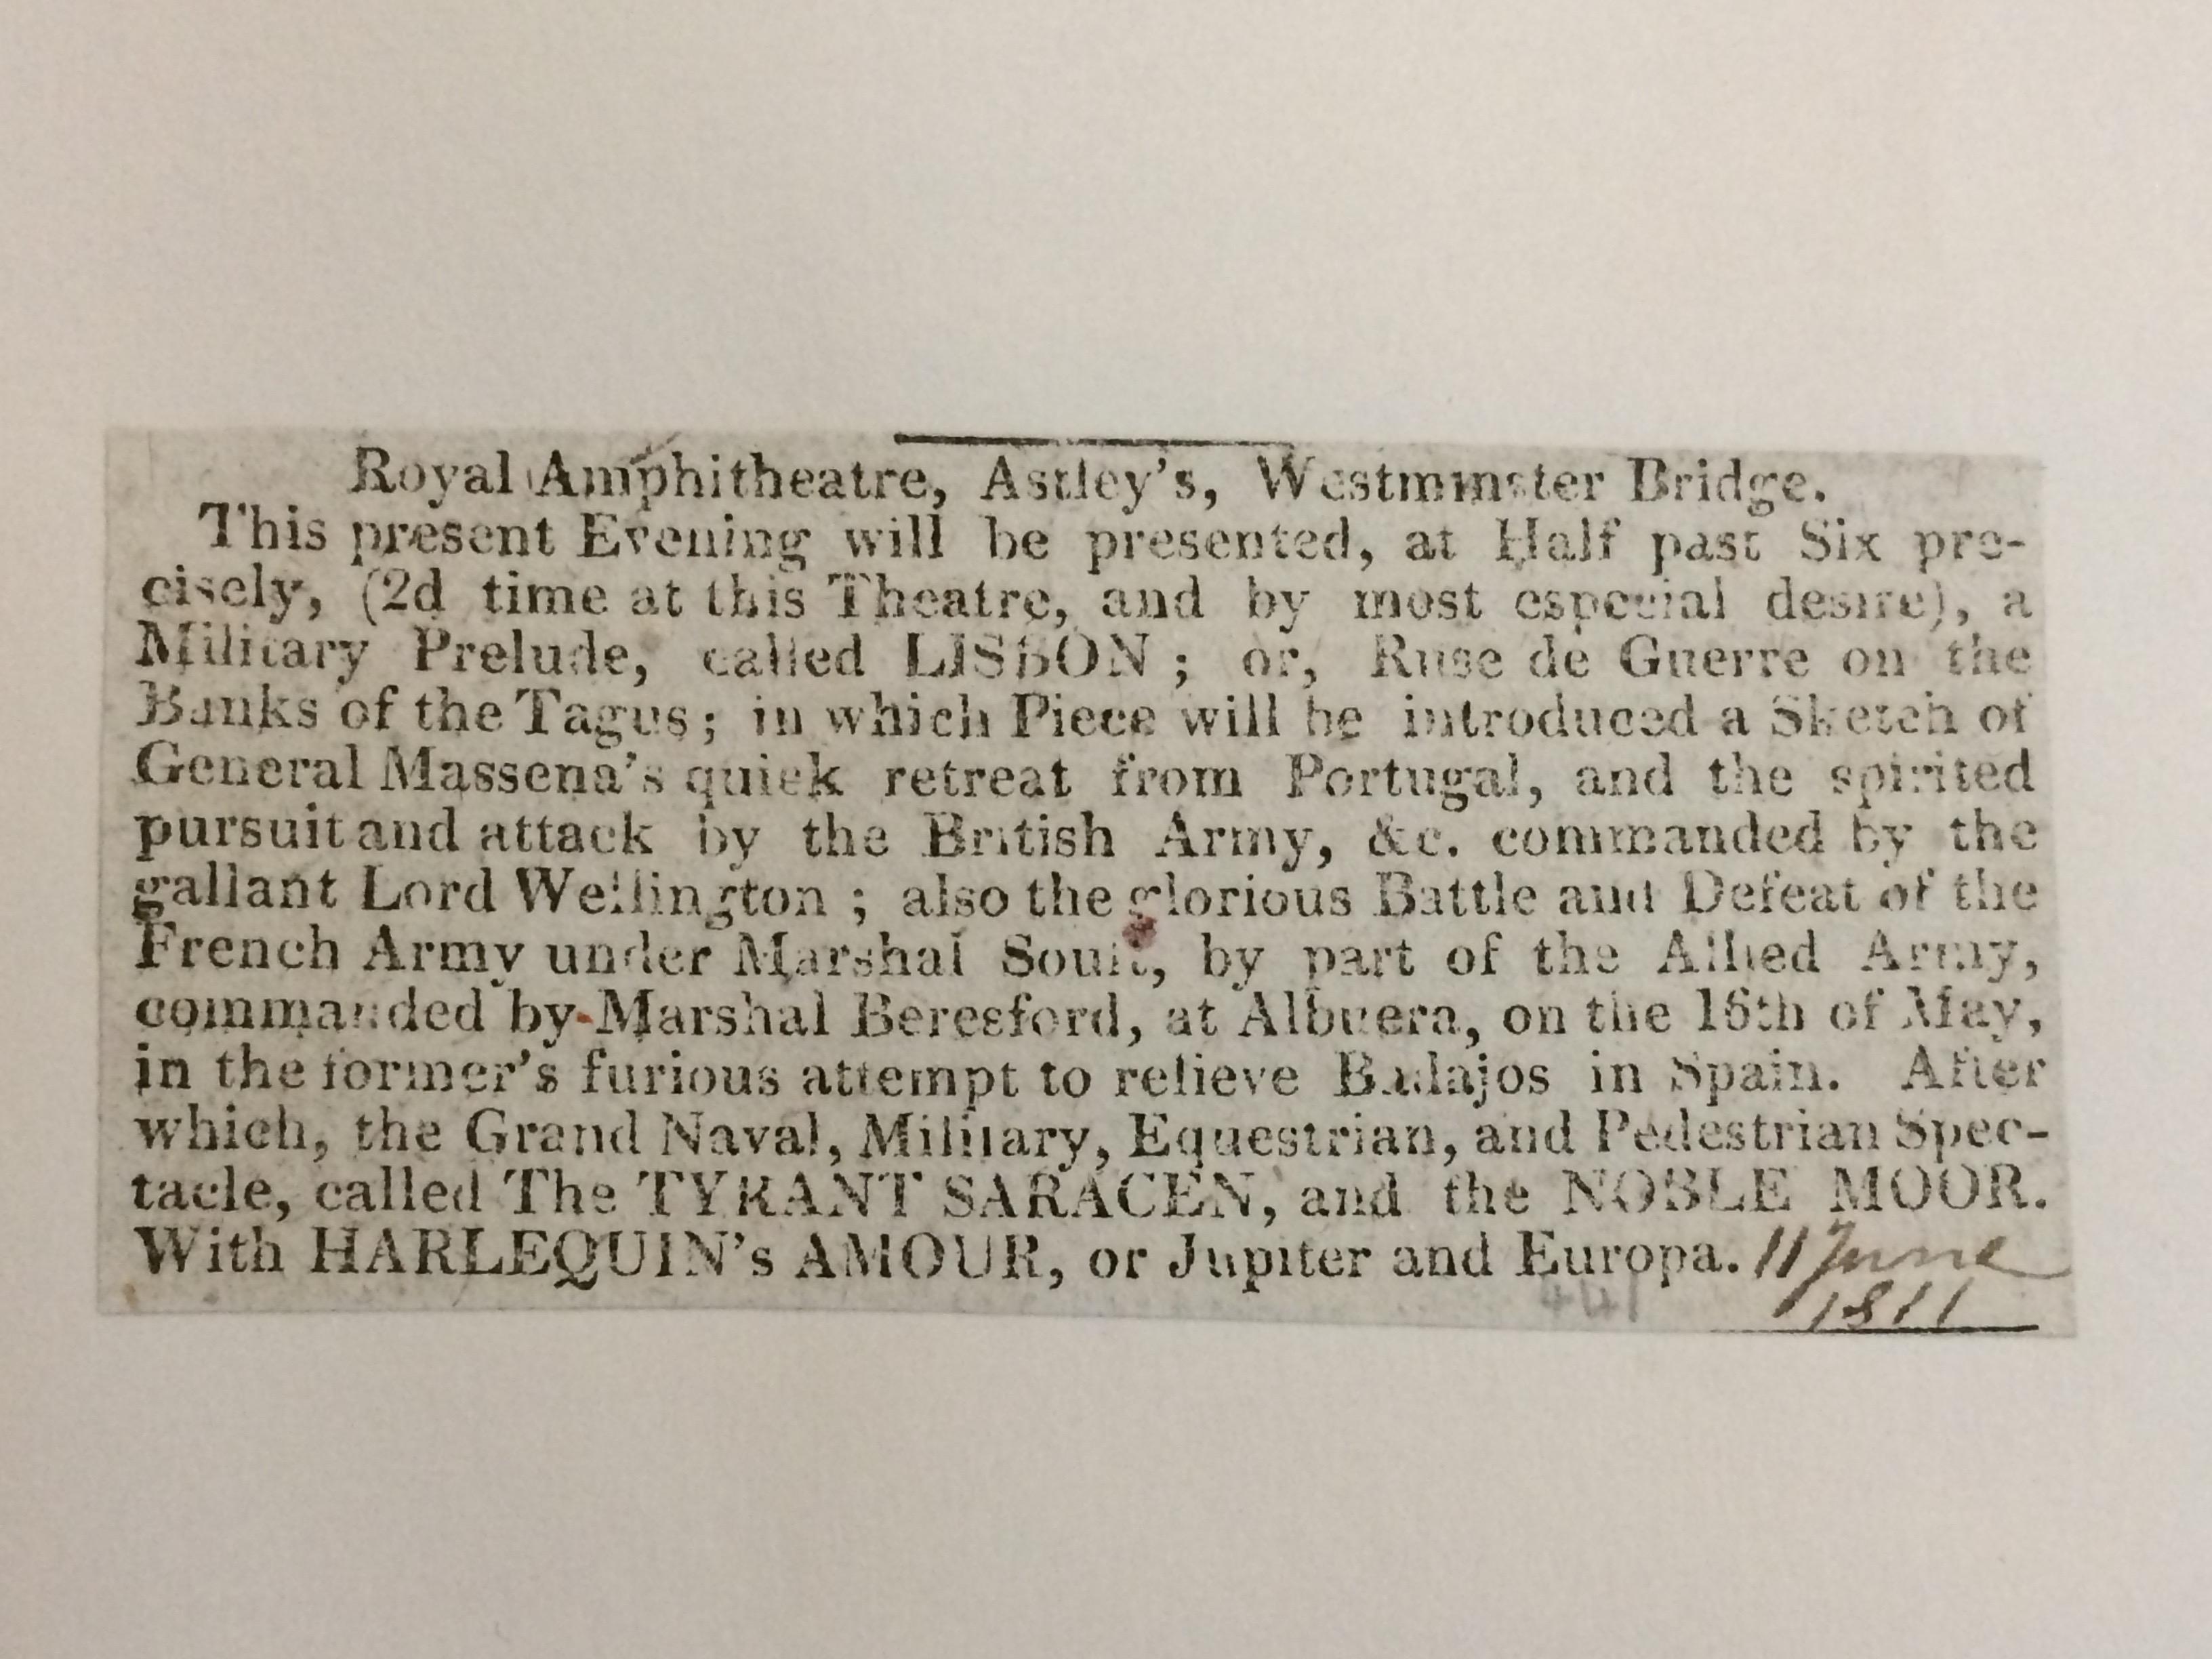 Royal Amphitheatre, Astley's, Westminster Bridge.
This present Evening will be presented, at Half past Six pre-
cisely, (2d time at this Theatre, and by most especial desire), a
Military Prelude, called LISBON; or, Ruse de Guerre on the
Banks of the Tagus; in which Piece will be introduced a Sketch of
General Massena's quick retreat from Portugal, and the spirited
pursuit and attack by the British Army, &c. commanded by the
gallant Lord Wellington; also the glorious Battle and Defeat of the
French Army under Marshal Soult, by part of the Allied Army,
commanded by Marshal Beresford, at Albuera, on the 16th of May,
in the former's furious attempt to relieve Badajos in Spain. After
which, the Grand Naval, Military, Equestrian, and Pedestrian Spec-
tacle, called The TYRANT SARACEN, and the NOBLE MOOR.
With HARLEQUIN's AMOUR, or Jupiter and Europa. 11 June
1811